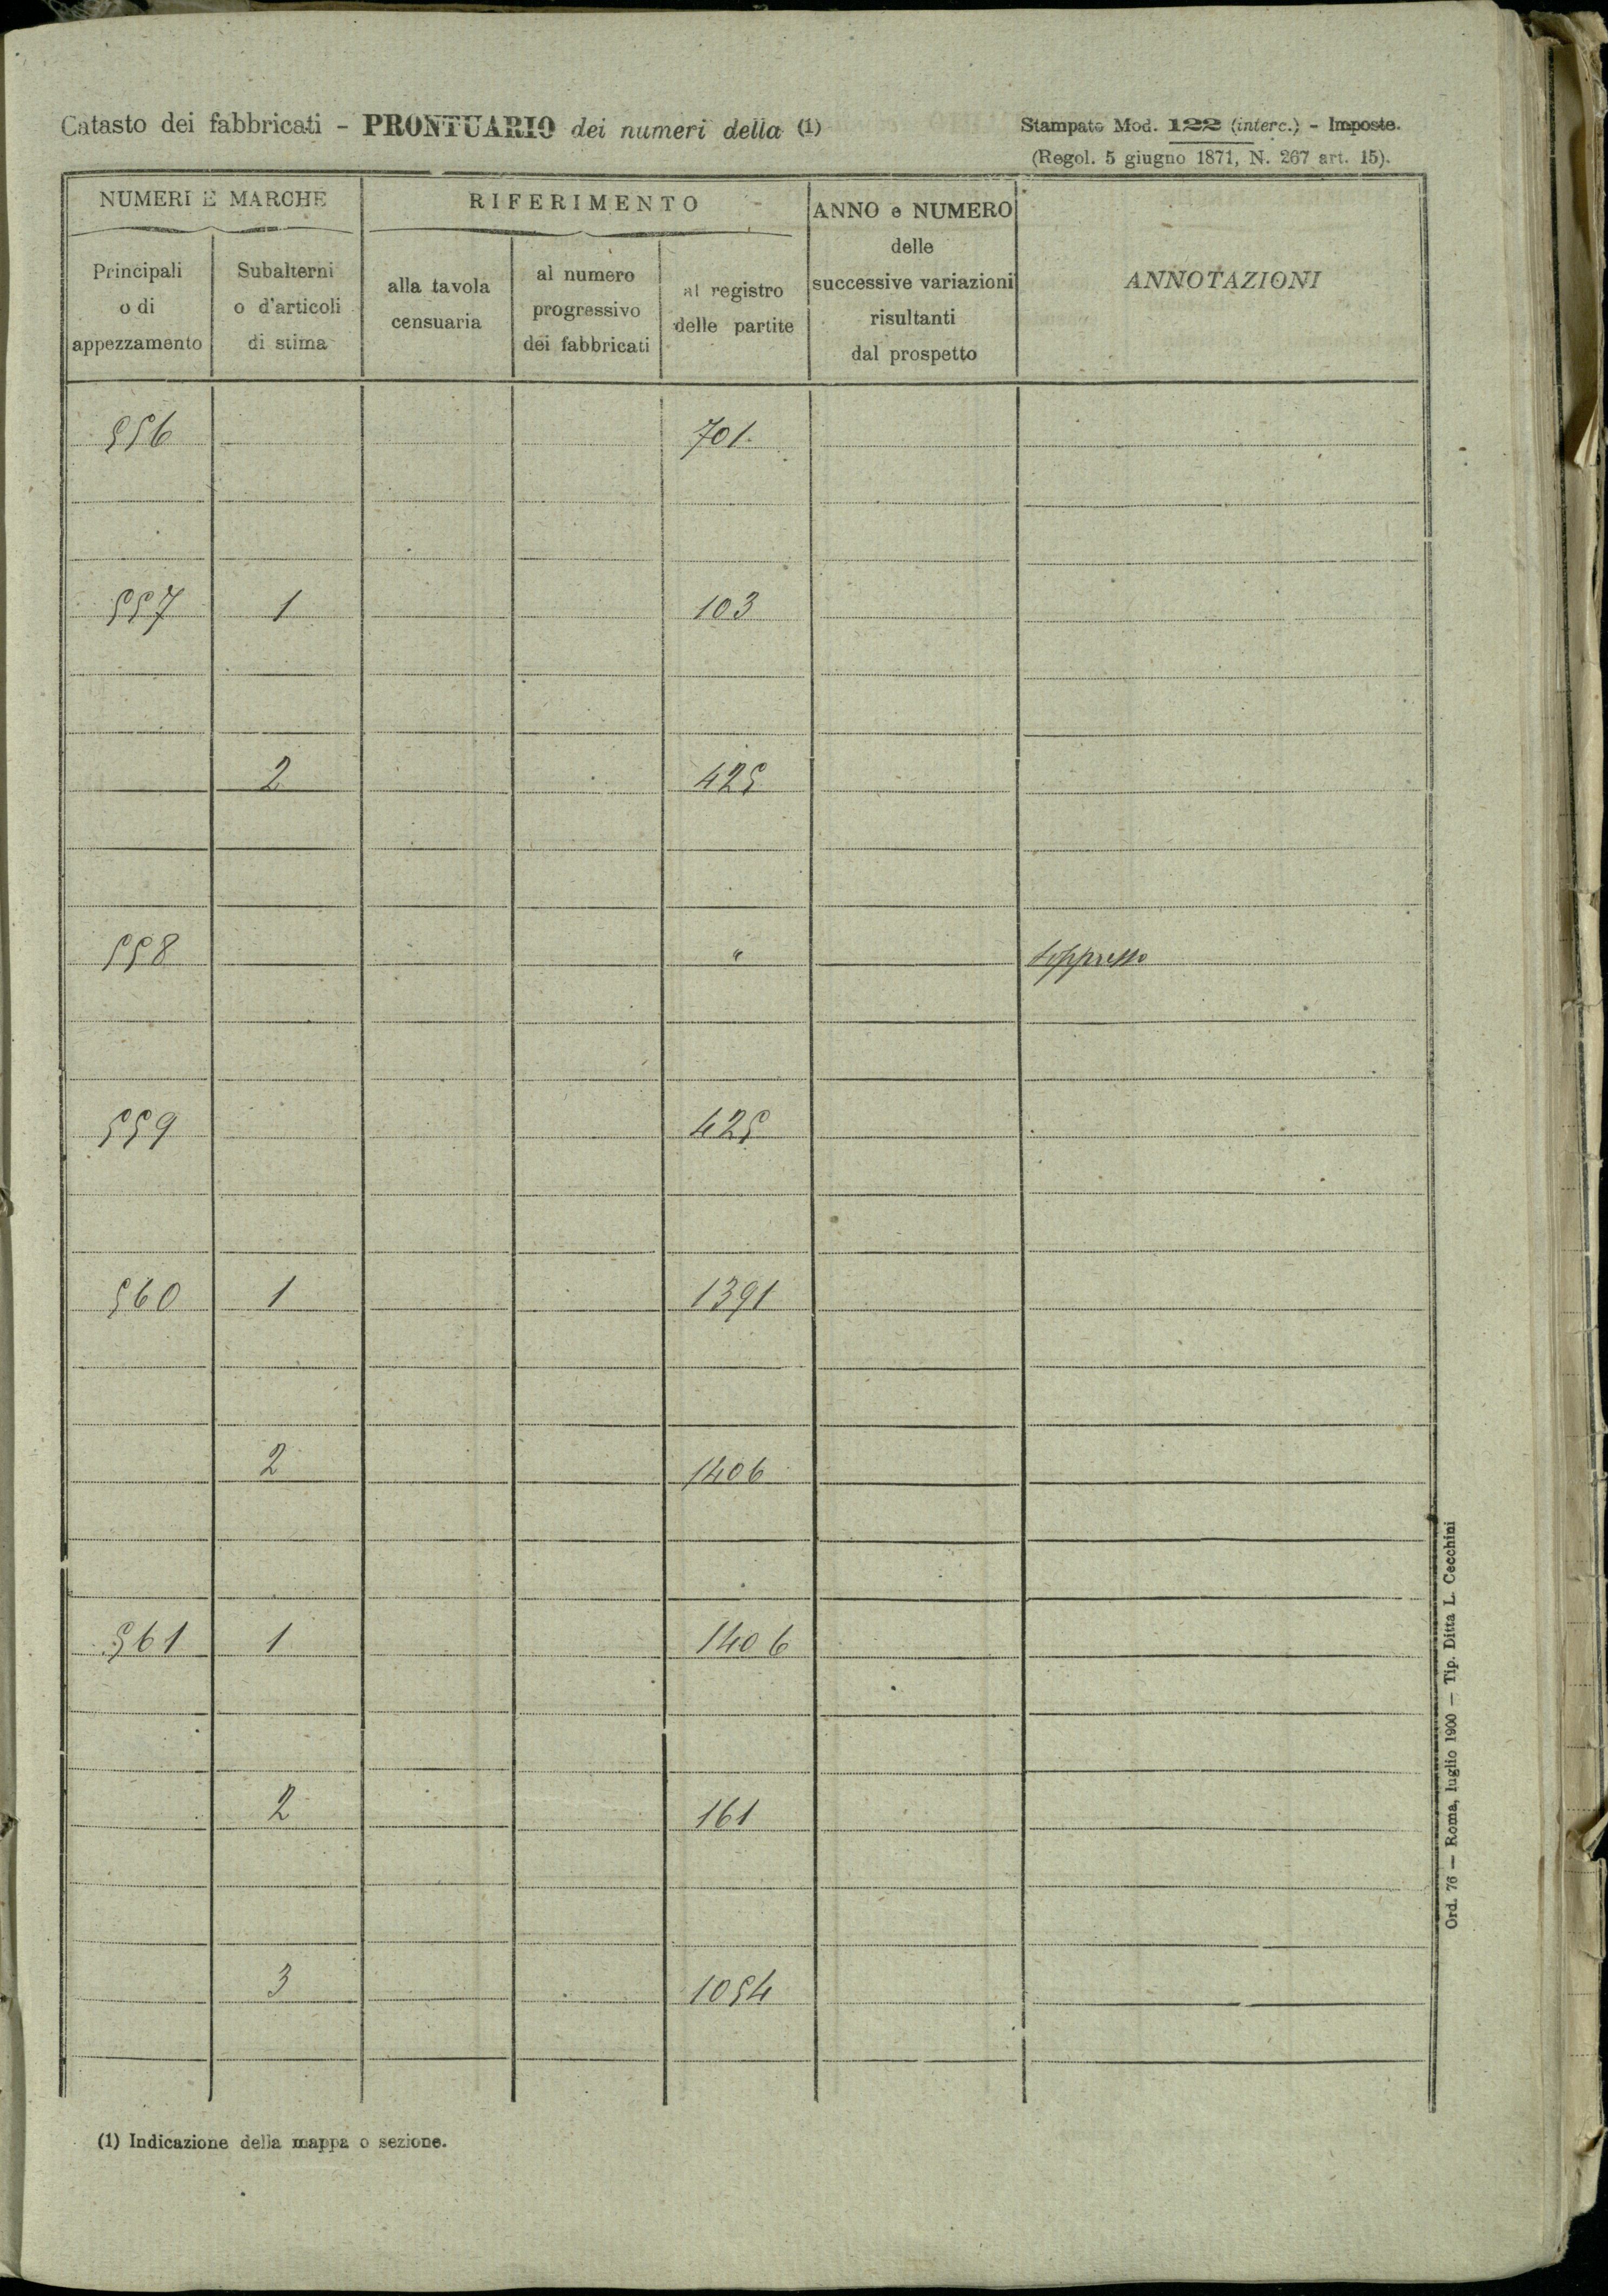 Catasto dei fabbricati - PRONTUARIO dei numeri della (1)
Stampato Mod. 122 (interc.) - Imposte.
(Regol. 5 giugno 1871, N. 267 art. 15).
NUMERI E MARCHE
RIFERIMENTO
ANNO e NUMERO
delle
successive variazioni
risultanti
dal prospetto
ANNOTAZIONI
Principali
o di
appezzamento
Subalterni
o d'articoli
di stima
alla tavola
censuaria
al numero
progressivo
dei fabbricati
al registro
delle partite
556 701
557 1 103
2 425
558 " soppresso
559 425
560 1 1391
2 1406
561 1 1406
2 161
3 1054
(1) Indicazione della mappa o sezione.
Ord. 76 — Roma, luglio 1900 — Tip. Ditta L. Cecchini